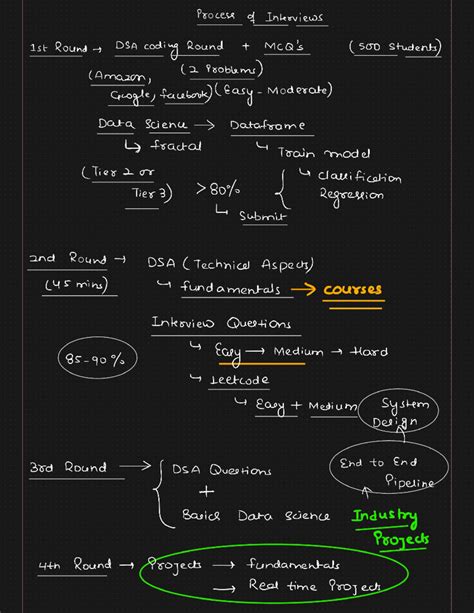 Process of Interviews
1st Round → DSA coding Round + MCQ's (500 Students)
(2 Problems)
(Amazon, Google, facebook) (Easy - Moderate)
Data Science → Dataframe
↳ fractal ↳ Train model
(Tier 2 or Tier 3) >80% { ↳ classification
Regression
↳ Submit
2nd Round → DSA (Technical Aspects)
(45 mins) ↳ fundamentals → courses
Interview Questions
85-90% ↳ Easy → Medium → Hard
↳ Leetcode
↳ Easy + Medium
System Design
End to End Pipeline
3rd Round → { DSA Questions
+
Basics Data Science
Industry Projects
4th Round → Projects → fundamentals
→ Real time Projects